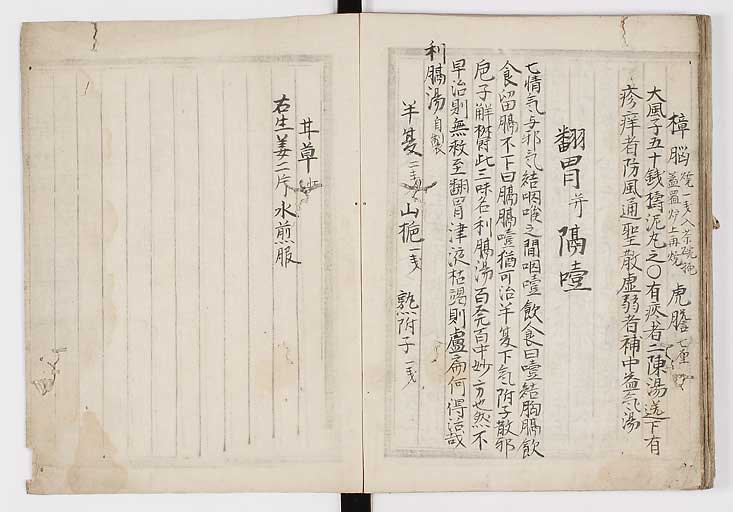 樟脳 燒一戔入茶碗掩蓋置炉上再燒 虎膽 七厘
大風子五十錢擣泥丸之〇有痰者二陳湯送下有
疹痒者防風通聖散虛弱者補中益气湯
翻胃 并 隔噎
七情气与邪气結咽喉之間咽噎飲食曰噎結胸膈飲
食留膈不下曰膈膈噎猶可治半夏下气附子散邪
巵子解鬱此三味名利膈湯百発百中妙方也然不
早治則無救至翻胃津液枯竭則盧扁何得治哉
利膈湯 自製
半夏 二戔 山梔 一戔 熟附子 一戔
甘草
右生姜二片水煎服